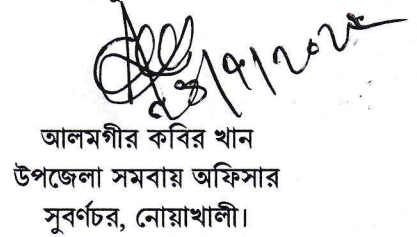 আলমগীর কবির খান
উপজেলা সমবায় অফিসার
সুবর্ণচর, নোয়াখালী।